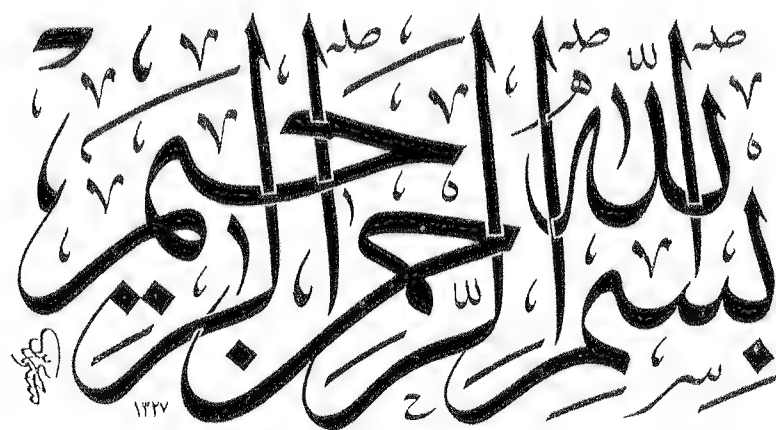 بسم الله الرحمن الرحيم
١٣٢٧